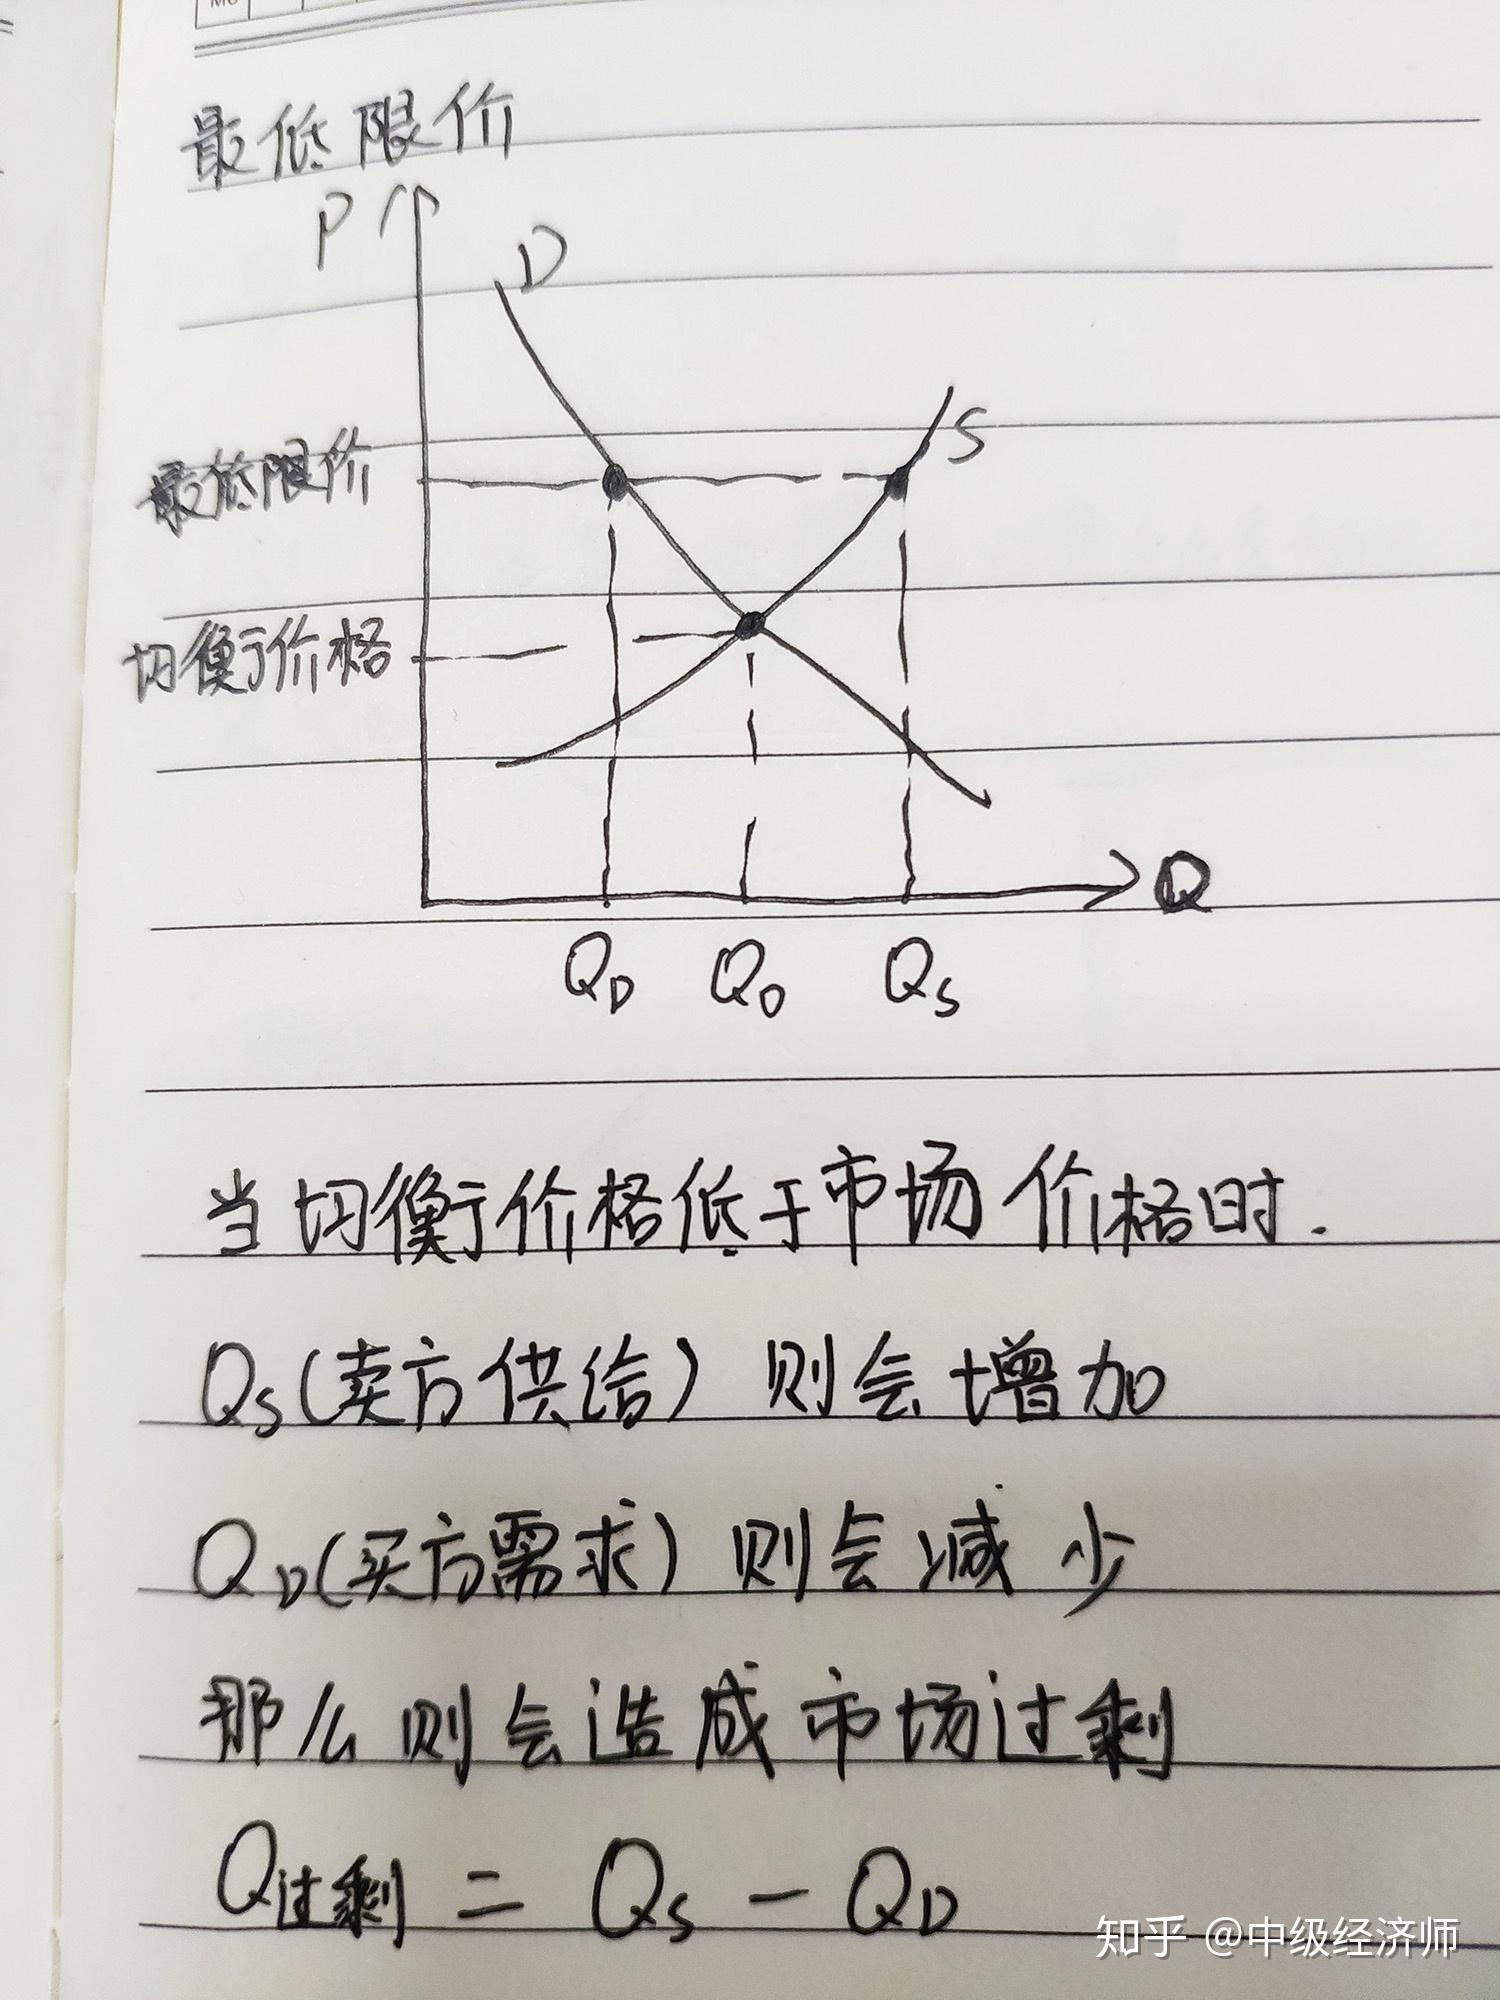 最低限价
P
D
S
最低限价
均衡价格
Q
Q_D Q_0 Q_S
当均衡价格低于市场价格时.
Q_S(卖方供给)则会增加
Q_D(买方需求)则会减少
那么则会造成市场过剩
Q过剩 = Q_S - Q_D
知乎 @中级经济师